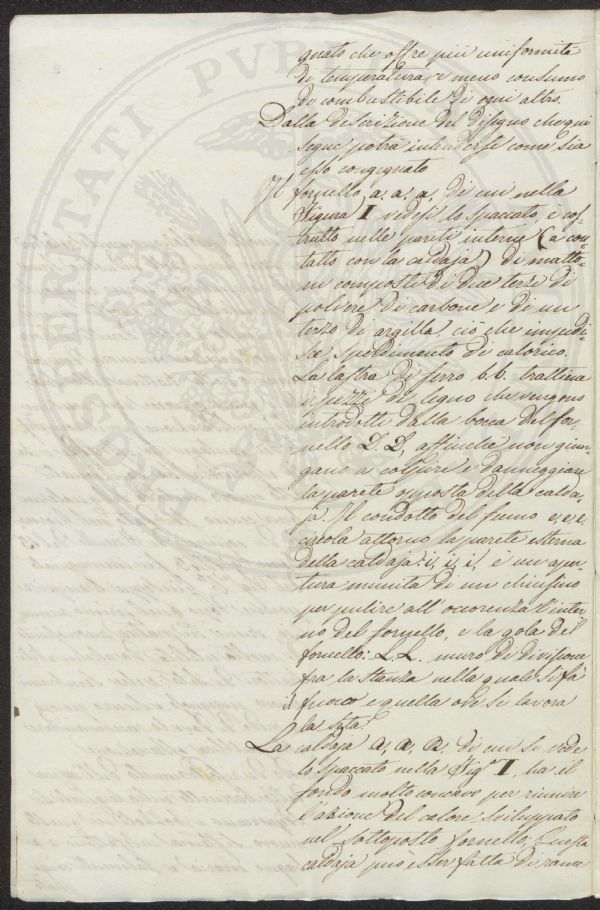 PROSPERITATI PVB
gnato che offre più uniformità
di temperatura, e meno consumo
di combustibile di ogni altro.
Dalla descrizione del disegno che qui
segue potrà intendersi come sia
esso congegnato
Il fornello a. a. a, di cui nella
Figura I vedesi lo spaccato, è cos=
trutto nelle pareti interne (a con=
tatto con la caldaja) di matto=
ni composti di due terzi di
polvere di carbone e di un
terzo di argilla ciò che impedi=
sce sperdimento di calorico.
La lastra di ferro b. b. trattiene
i pezzi di legno che vengono
introdotti dalla bocca del for=
nello D. D, affinchè non giun=
gano a colpire e danneggiare
la parete opposta della calda=
ja. Il condotto del fumo e, e, e,
circola attorno la parete esterna
della caldaja: i, i, i, è un aper=
tura munita di un chiusino
per pulire all'occorenza l'inter=
no del fornello, e la gola del
fornello: L. L. muro di divisione
fra la stanza nella quale si fà
il fuoco e quella ove si lavora
la seta.
La caldaja a, a, a, di cui si vede
lo spaccato nella Fig.ª I, ha il
fondo molto concavo per riunire
l'azione del calore sviluppato
nel sottoposto fornello. Questa
caldaja può esser fatta di rame